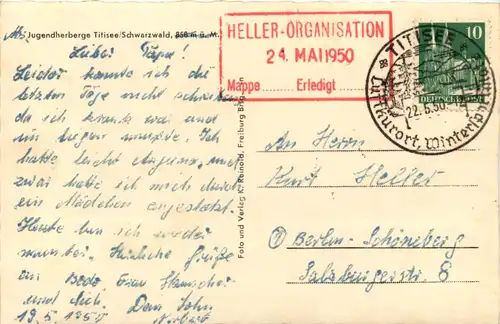 Jugendherberge Titisee/Schwarzwald, 858 m ü. M.
Lieber Papa!
Leider konnte ich die
letzten Tage nicht schreiben
da ich krank war und
im liegen musste. Ich
hatte leicht Angina, und
zwar hatte ich mich durch
ein Mädchen angesteckt.
Heute bin ich wieder
munter. Herzliche Grüße
an Bodo, Frau
und Dich. Dein Sohn
19.5.1950 Norbert
Foto und Verlag K. Reinold, Freiburg
HELLER-ORGANISATION
24. MAI 1950
Mappe Erledigt
10
DEUTSCHE POST
TITISEE
22.5.50
Luftkurort, Wintersport
An Herrn
Kurt Heller
Berlin-Schöneberg
Salzburgerstr. 8